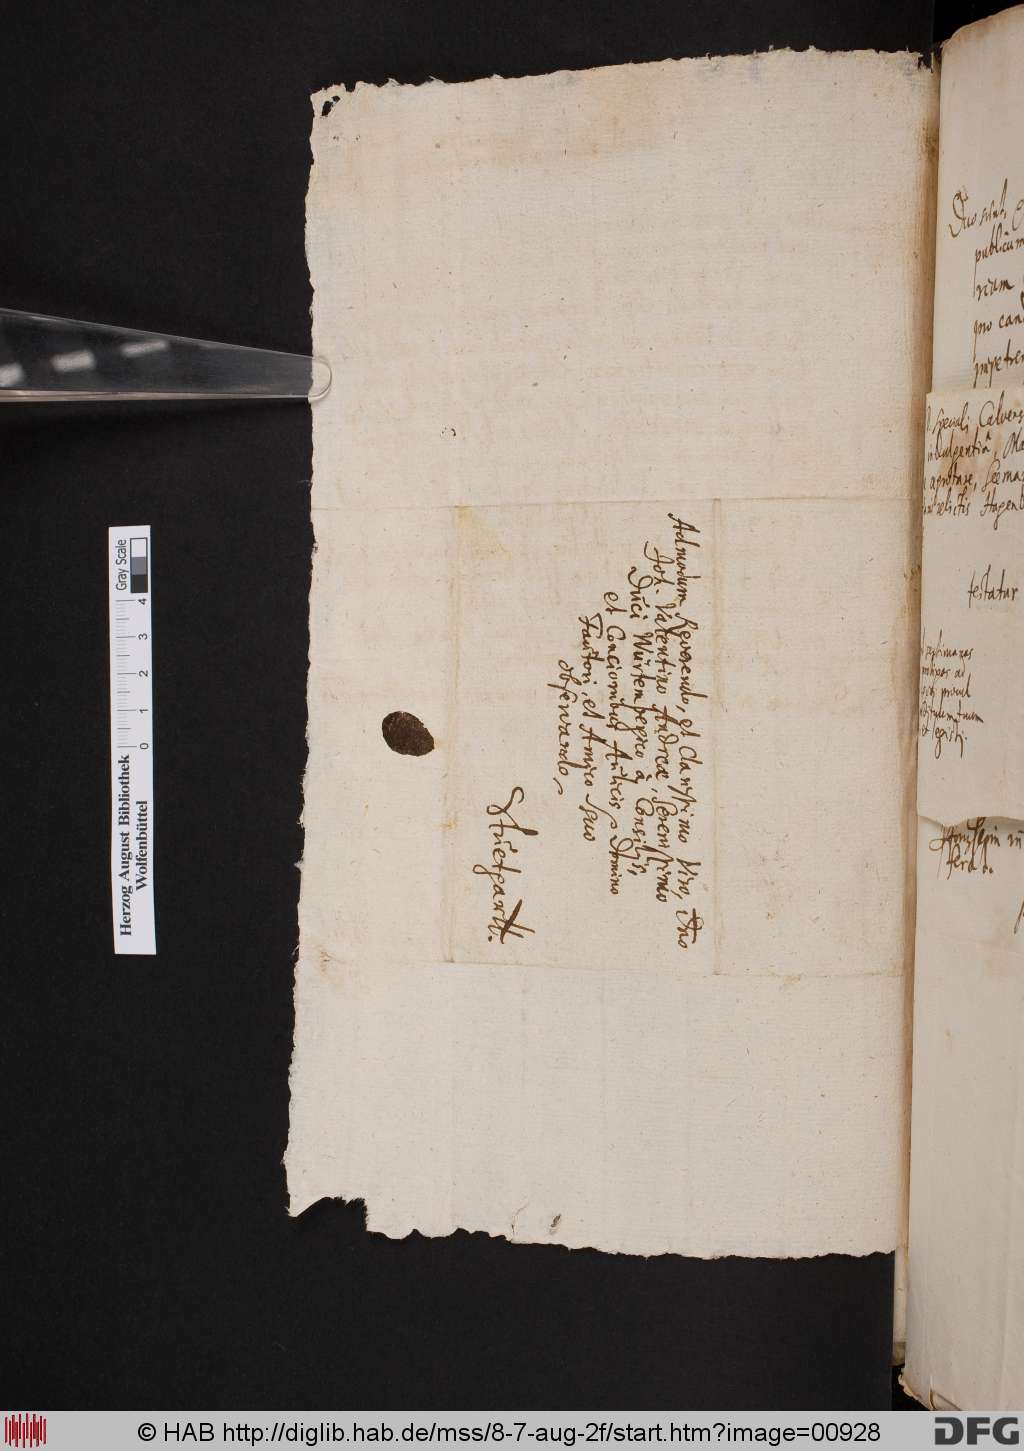 Admodum Reverendo, et Clarissimo Viro, Dno
Joh. Valentino Andreæ, Serenissimo
Duci Würtembergico à Consilijs,
et Concionibus Aulicis, Domino
Fautori, et Amico suo
observando,
Stuetgardt.
publicum
pro
D. Speciali Calvens
indulgentiâ,
testatur
Herzog August Bibliothek
Wolfenbüttel
0 1 2 3 4
Gray Scale
© HAB http://diglib.hab.de/mss/8-7-aug-2f/start.htm?image=00928
DFG